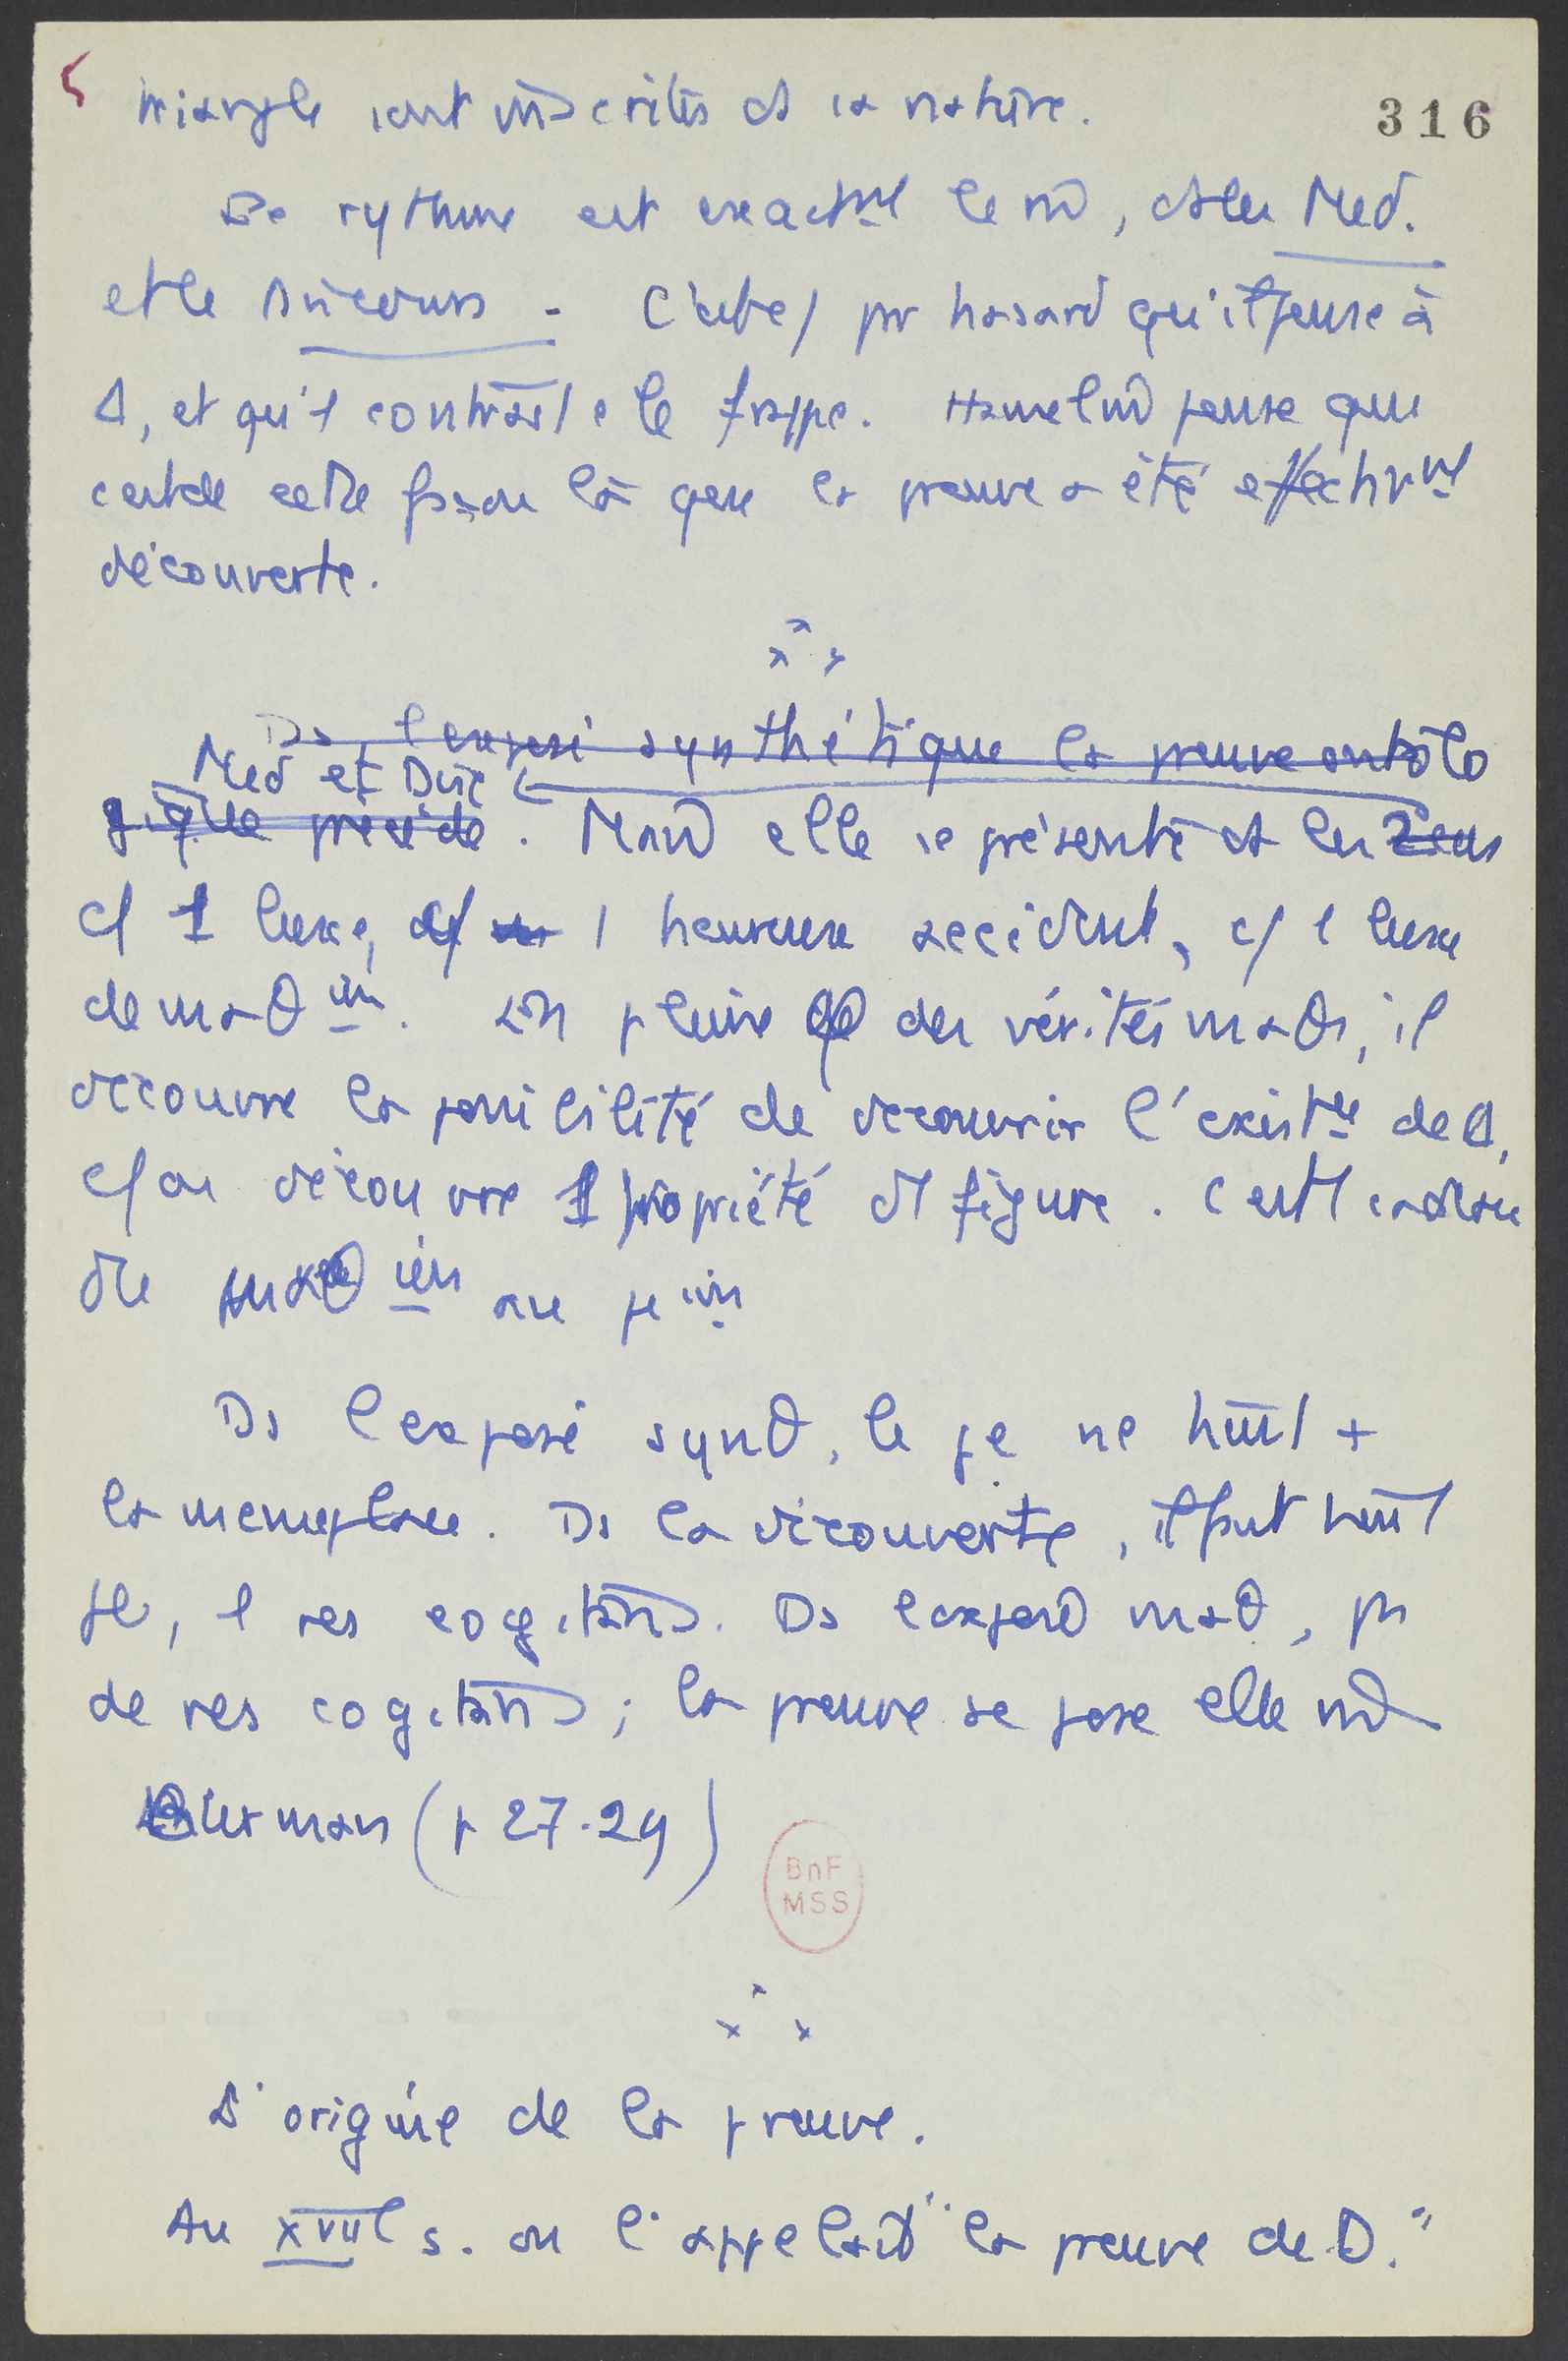 316
triangle sont inscrites ds sa nature.
Le rythme est exactmt le m̂, ds les Med.
et le Discours. C'est pr hasard qu'il pense à
Δ, et qu'il le frappe. Hamelin pense que
c'est de cette façon là que la preuve a été effectivmt
découverte.
Ds l'exposé synthétique la preuve ontolo
Med et Disc
gique précède. Mais elle se présente ds les 2 cas
c/ 1 luxe, c/ 1 heureux accident, c/ 1 luxe
de maθien. En pleine des vérités maθs, il
découvre la possibilité de découvrir l'existce de Δ,
c/ on découvre 1 propriété d'1 figure. C'est l'
de maθien
Ds l'exposé synθ, le je ne tient +
la meme place. Ds la découverte, il faut tenir
je, 1 res cogitans. Ds l'exposé maθ, pas
de res cogitans ; la preuve se pose elle m̂
Burman (p 27-29)
BnF
MSS
L'origine de la preuve.
Au XVIIe s. on l'appelait "la preuve de D."